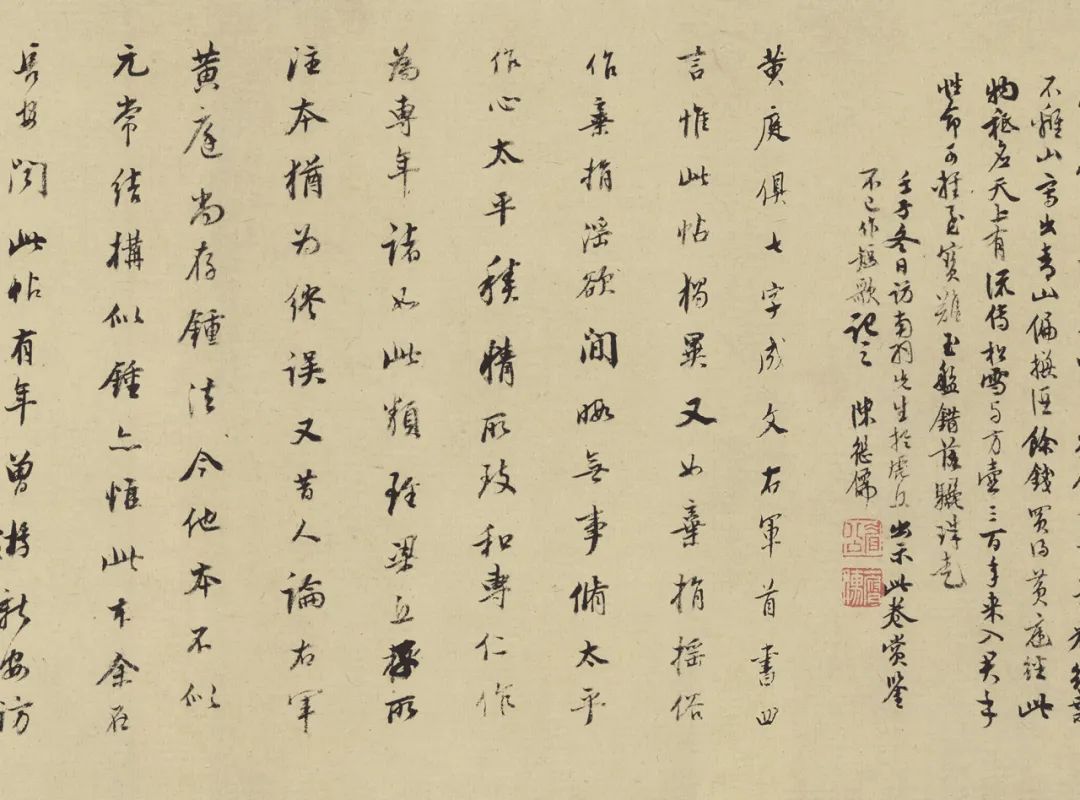 不難山寫出青山偏換酒餘錢買得黃庭經此
物秘名天上有流傳松雪与方壺三百年來入君手
性命可輕至寶難玉盤錯落驪珠走
壬子冬日訪南羽先生於虎丘出示此卷賞鑒
不已作短歌記之 陳繼儒
黃庭俱七字成文右軍首書四
言惟此帖獨異又如棄捐搖俗
作棄捐淫欲閒暇無事脩太平
作心太平積精所致和專仁作
為專年諸如此類殆梁丘子所
注本猶為終誤又昔人論右軍
黃庭尚存鍾法今他本不似
元常結構似鍾亦惟此本余在
長安聞此帖有年曾游新安訪